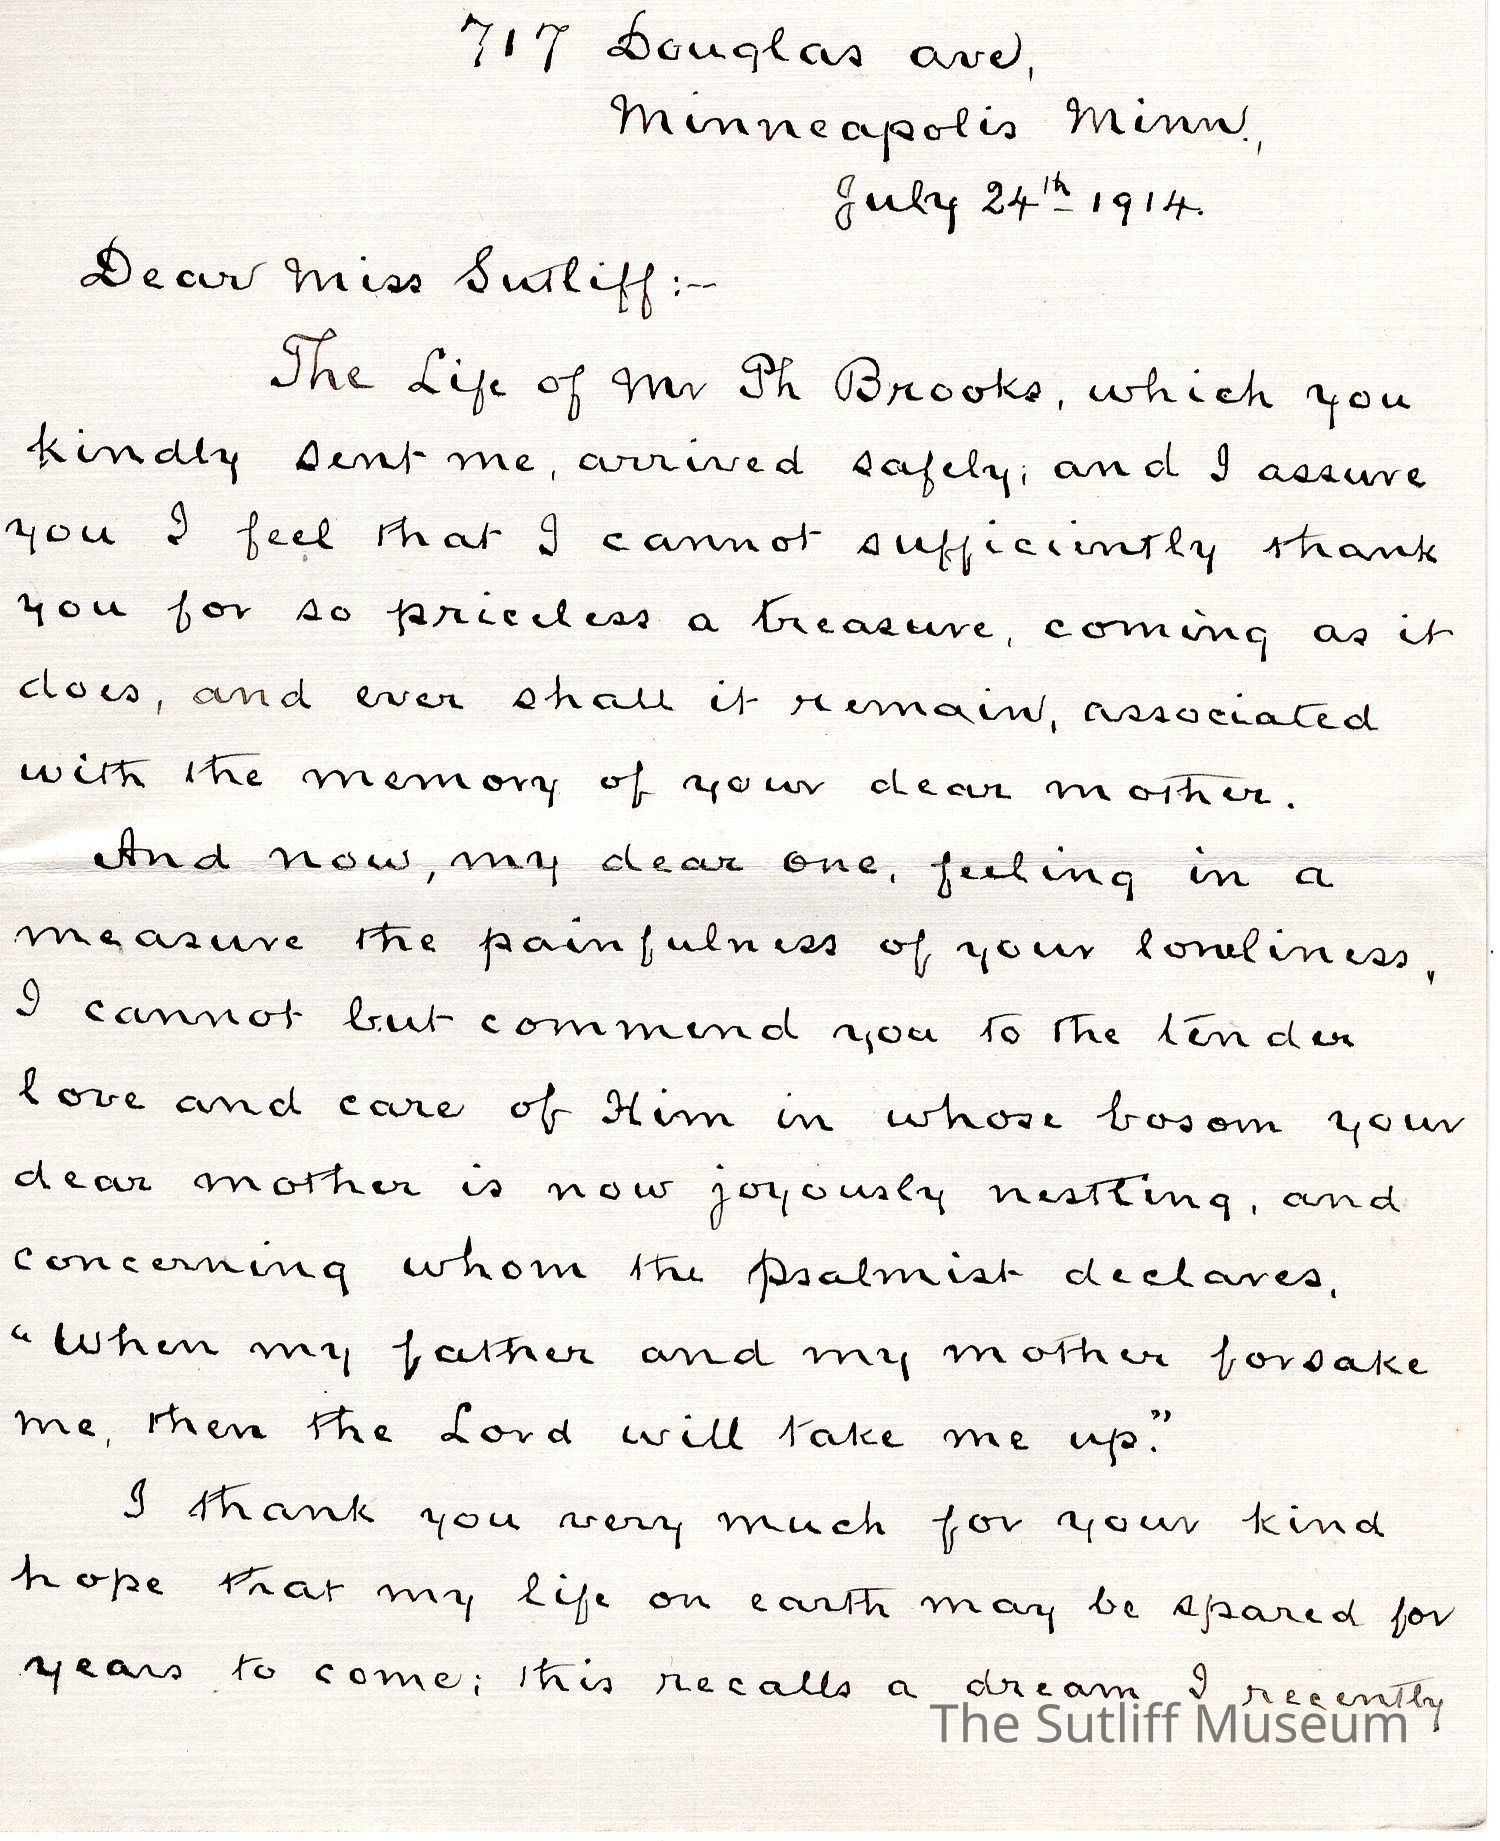 717 Douglas ave,
Minneapolis Minn.,
July 24th 1914.
Dear Miss Sutliff:-
The Life of Mr Ph Brooks, which you
kindly sent me, arrived safely; and I assure
you I feel that I cannot sufficiently thank
you for so priceless a treasure, coming as it
does, and ever shall it remain, associated
with the memory of your dear mother.
And now, my dear one, feeling in a
measure the painfulness of your loneliness,
I cannot but commend you to the tender
love and care of Him in whose bosom your
dear mother is now joyously nestling, and
concerning whom the psalmist declares,
“When my father and my mother forsake
me, then the Lord will take me up.”
I thank you very much for your kind
hope that my life on earth may be spared for
years to come; this recalls a dream I recently
The Sutliff Museum